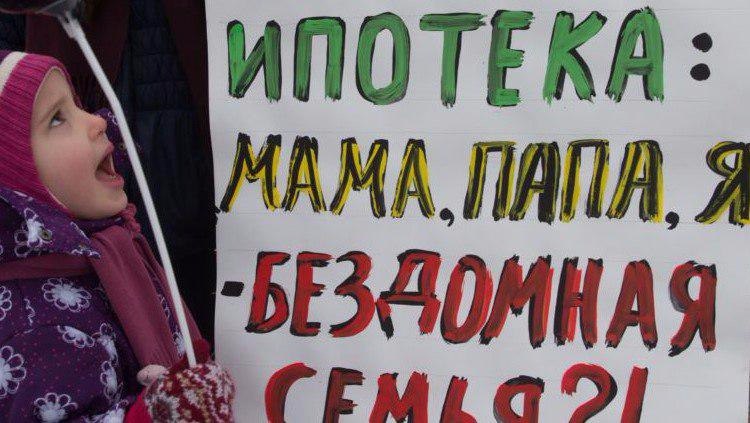 ИПОТЕКА:
МАМА, ПАПА, Я
- БЕЗДОМНАЯ
СЕМЬЯ?!